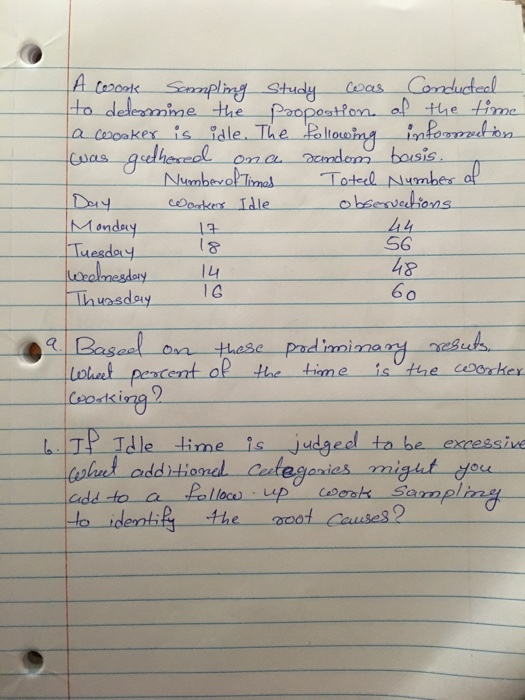 A work Sampling Study was Conducted
to determine the Proportion of the time
a worker is idle. The following information
was gathered on a random basis.
Number of Times Total Number of
Day worker Idle observations
Monday 17 44
Tuesday 18 56
Wednesday 14 48
Thursday 16 60
a. Based on these prediminary resuts,
what percent of the time is the worker
working?
b. If Idle time is judged to be excessive
what additional Categories might you
add to a follow-up work Sampling
to identify the root Causes?